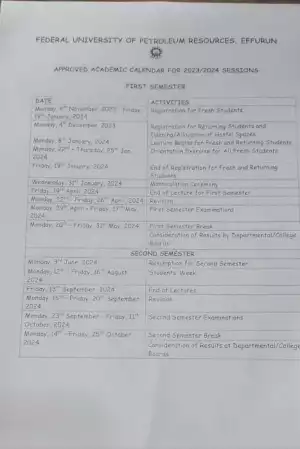 FEDERAL UNIVERSITY OF PETROLEUM RESOURCES, EFFURUN
APPROVED ACADEMIC CALENDAR FOR 2023/2024 SESSIONS
FIRST SEMESTER
DATE ACTIVITIES
Monday, 6th November, 2023 - Friday, Registration for Fresh Students
January, 2024
Monday, 4th December, 2023 Registration for Returning Students and
of Hostel Spaces
Monday, 8th January, 2024 Lecture Begins for Fresh and Returning Students
Monday, 22nd - Thursday, 25th Jan. Orientation Exercise for All Fresh Students
2024
Friday, January, 2024 End of Registration for Fresh and Returning
Students
Wednesday, 31st January, 2024 Matriculation Ceremony
Friday, 19th April, 2024 End of Lecture for First Semester
Monday, 22nd - Friday, 26th April, 2024 Revision
Monday, 29th April - Friday, 17th May, First Semester Examinations
2024
Monday, - Friday, 31st May, 2024 First Semester Break
Consideration of Results by Departmental/College
Boards
SECOND SEMESTER
Monday, 3rd June, 2024 Resumption for Second Semester
Monday, 12th - Friday, 16th August Students' Week
2024
Friday, September, 2024 End of Lectures
Monday, 16th - Friday, 20th September Revision
2024
Monday, 23rd September - Friday, 11th Second Semester Examinations
October, 2024
Monday, 14th - Friday, 25th October Second Semester Break
2024 Consideration of Results at Departmental/College
Boards